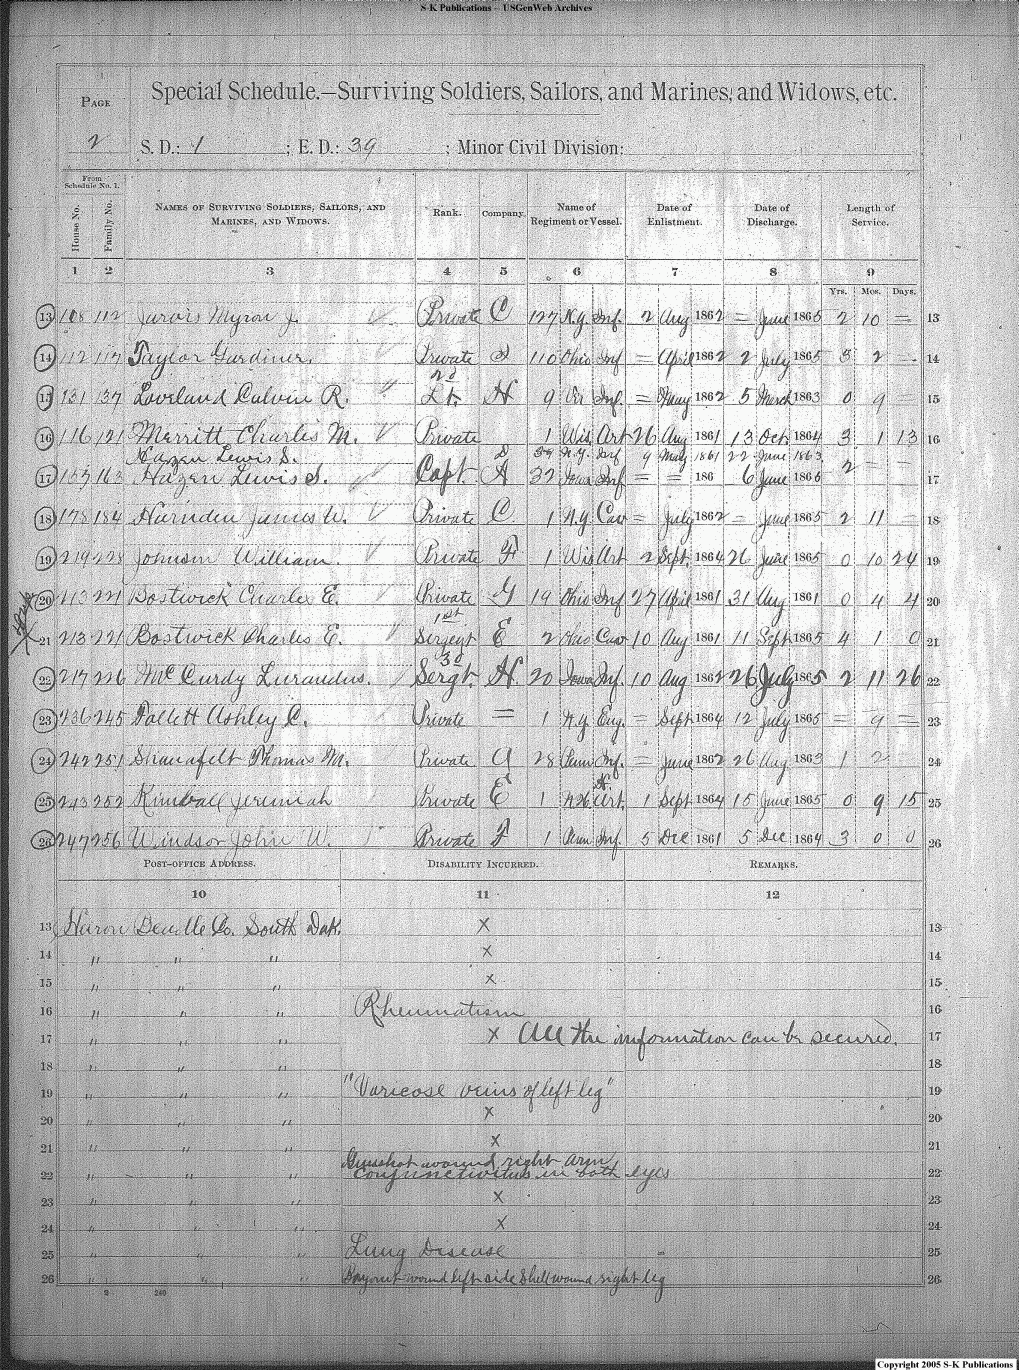 S-K Publications – USGenWeb Archives
Special Schedule.—Surviving Soldiers, Sailors, and Marines, and Widows, etc.
PAGE
2 S. D.: 1 ; E. D.: 39 ; Minor Civil Division:
From Schedule No. 1.
House No. Family No. NAMES OF SURVIVING SOLDIERS, SAILORS, AND MARINES, AND WIDOWS. Rank. Company. Name of Regiment or Vessel. Date of Enlistment. Date of Discharge. Length of Service.
1 2 3 4 5 6 7 8 9
Yrs. Mos. Days.
13 108 112 Jarvis Myron J. Private C 127 N.Y. Inf. 2 Aug 1862 = June 1865 2 10 = 13
14 112 117 Taylor Gardiner. Private 110 Ohio Inf = April 1862 2 July 1865 3 2 — 14
2d
15 131 137 Loveland Calvin R. Lt. H 9 Ver Inf. = May 1862 5 March 1863 0 9 = 15
16 116 121 Merritt Charles M. Private 1 Wis. Art 26 Aug 1861 13 Oct. 1864 3 1 13 16
Hazen Lewis S. D N.Y. Inf 9 May 1861 22 June 1863
17 157 163 Hazen Lewis S. Capt. A 32 Iowa Inf = = 186 6 June 1865 2 = = 17
18 178 184 Harnden James W. Private C. 1 N.Y. Cav = July 1862 = June 1865 2 11 = 18
19 219 228 Johnson William. Private F 1 Wis Art 2 Sept. 1864 26 June 1865 0 10 24 19
20 213 221 Bostwick Charles E. Private G 19 Ohio Inf 27 Apl 1861 31 Aug 1861 0 4 4 20
1st
21 213 221 Bostwick Charles E. Serjegt E 2 Ohio Cav 10 Aug 1861 11 Sept. 1865 4 1 0 21
3d
22 217 226 Mc Curdy Lurandus. Sergt. H. 20 Iowa Inf. 10 Aug 1862 26 July 1865 2 11 26 22
23 236 245 Follett Ashley C. Private = 1 N.Y. Eng. = Sept 1864 12 July 1865 = 9 = 23
24 242 251 Shanafelt Thomas M. Private 28 Penn Inf. = June 1862 26 Aug 1863 1 2 24
H.
25 243 252 Kimball Jeremiah Private E 1 N.H. Art. 1 Sept 1864 15 June 1865 0 9 15 25
26 247 256 Windsor John W. Private F 1 Penn Inf. 5 Dec 1861 5 Dec 1864 3 0 0 26
POST-OFFICE ADDRESS. DISABILITY INCURRED. REMARKS.
10 11 12
13 Huron Beadle Co. South Dak. X 13
14 " " " X 14
15 " " " X 15
16 " " " Rheumatism 16
17 " " " X All the information can be secured. 17
18 " " " 18
19 " " " "Varicose veins of left leg" 19
20 " " " X 20
21 " " " X 21
Gunshot wound right arm
22 " " " conjunctivitus in both eyes 22
23 " " " X 23
24 " " " X 24
25 " " " Lung Disease 25
26 " " " Bayonet wound left side Shell wound right leg 26
2 240
Copyright 2005 S-K Publications